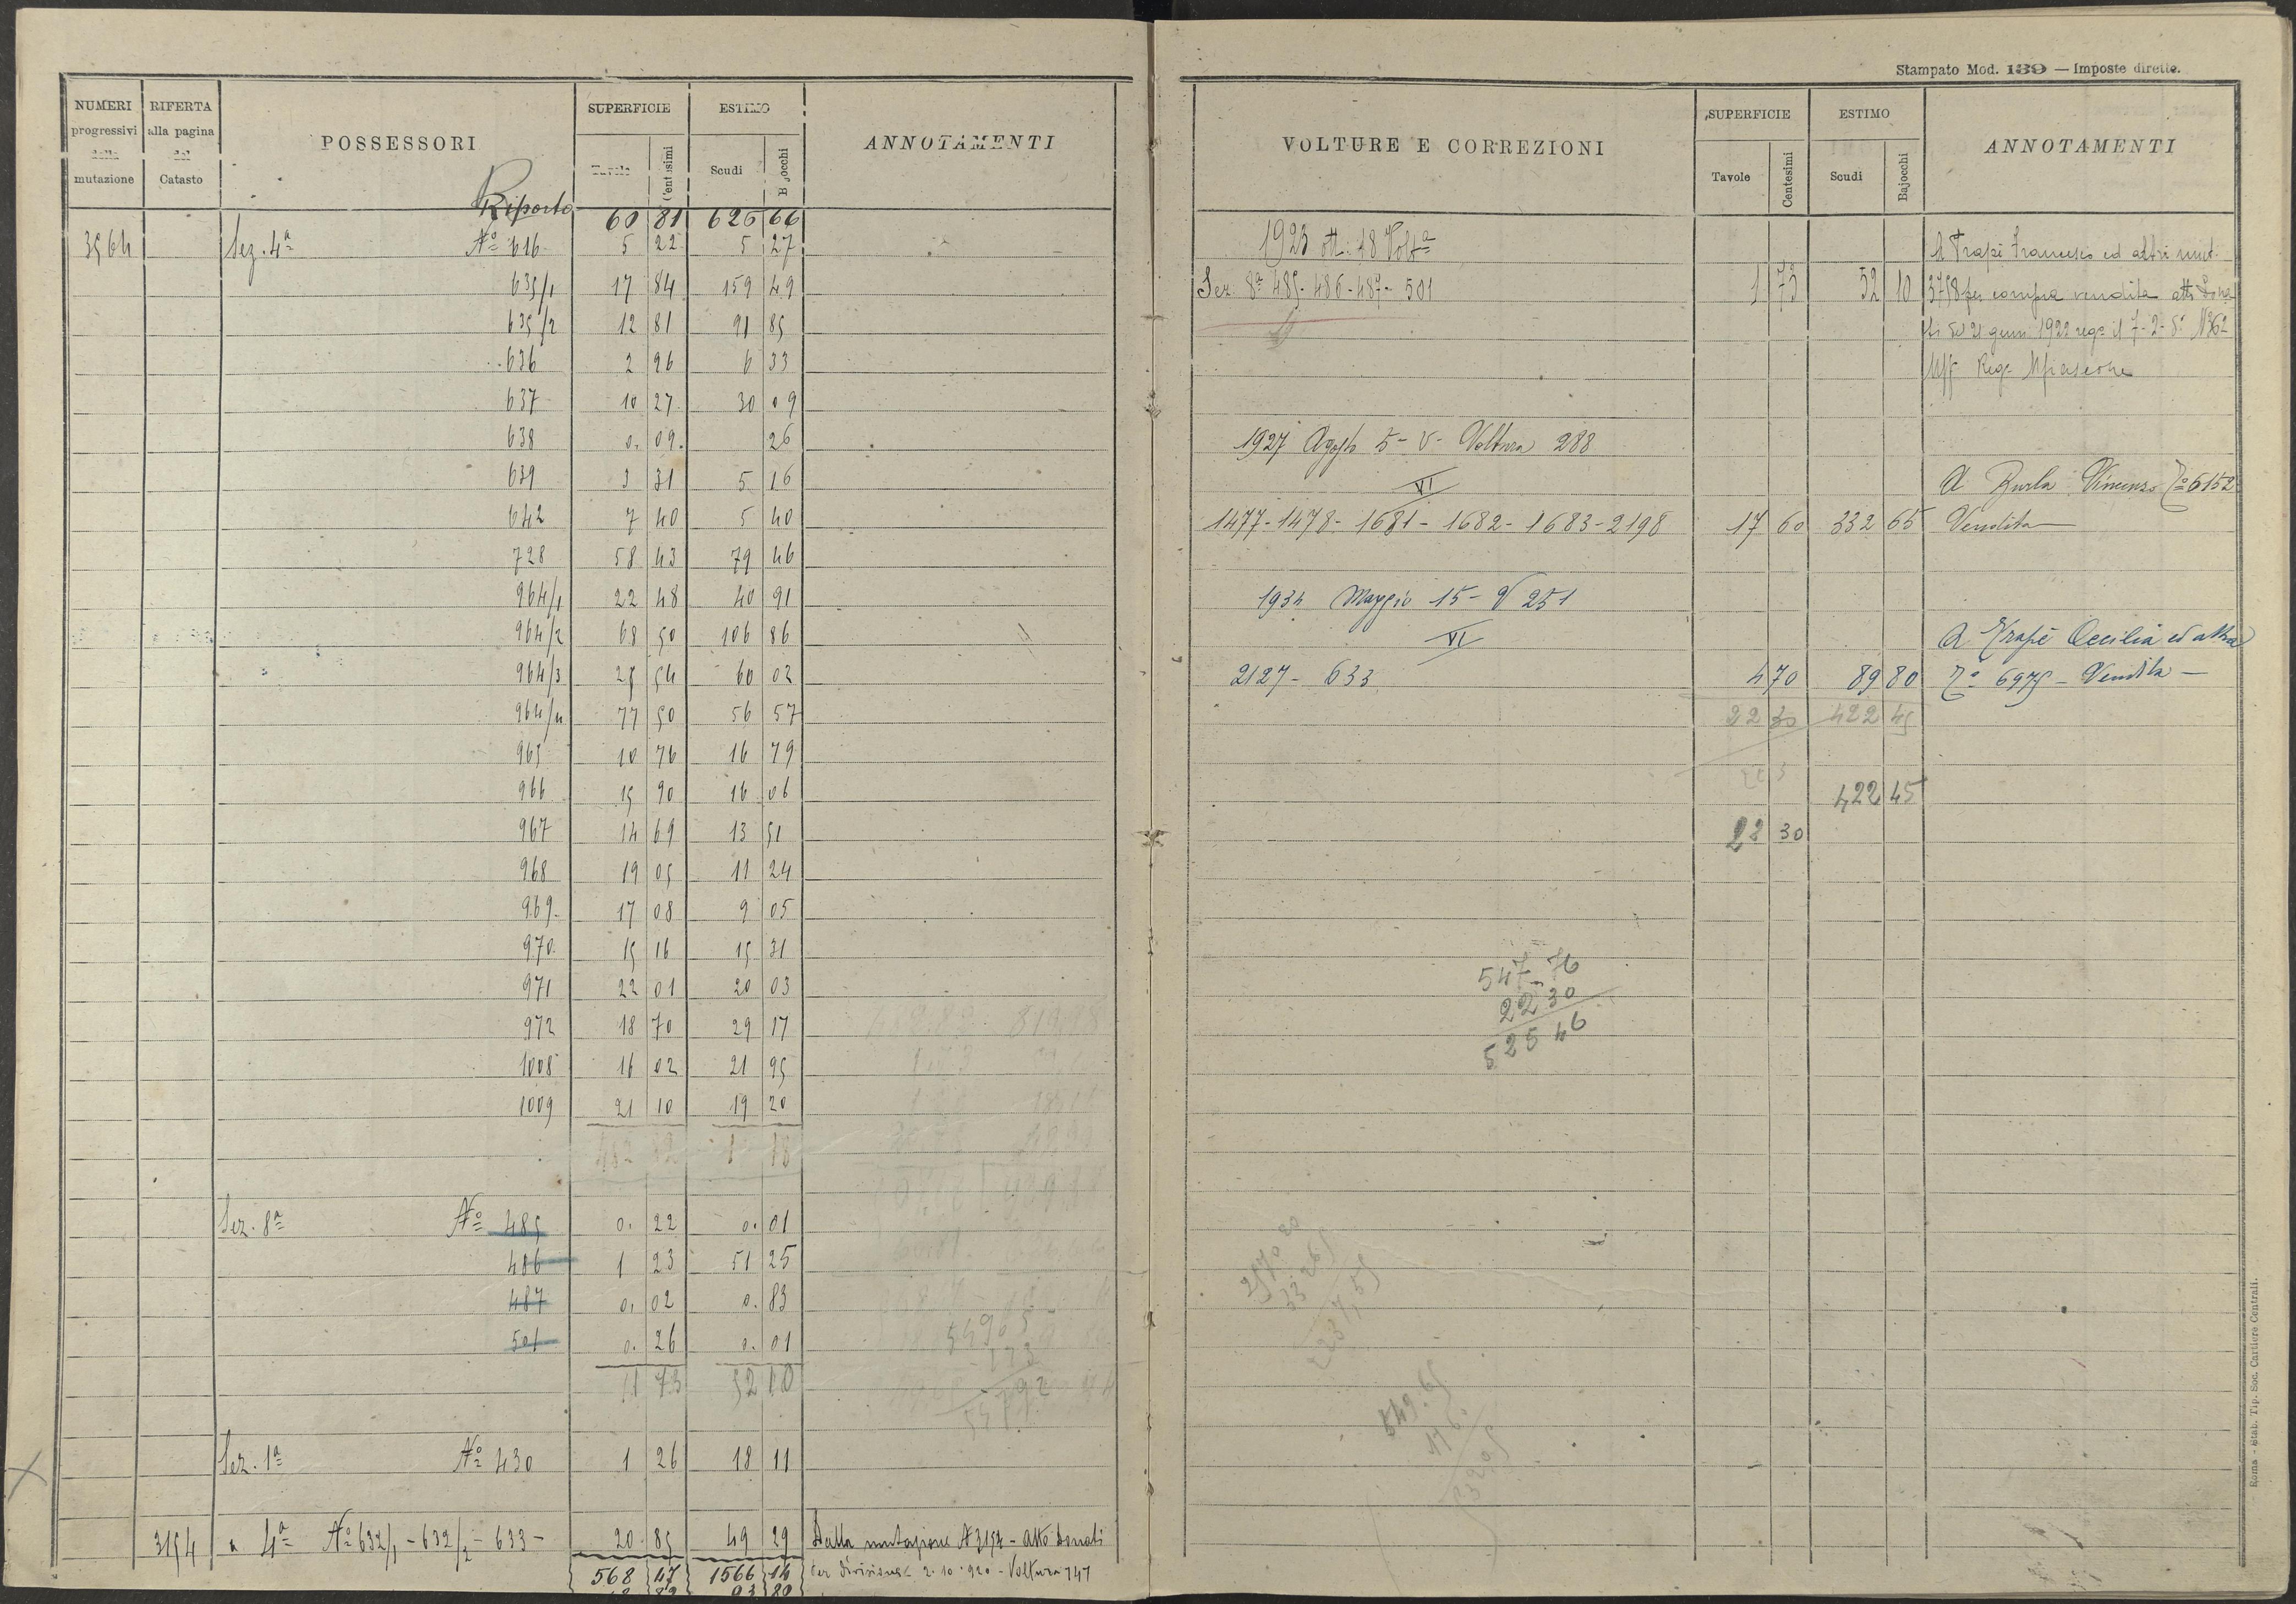 NUMERI progressivi della mutazione
RIFERTA alla pagina del Catasto
POSSESSORI
SUPERFICIE
Tavole
Centesimi
ESTIMO
Scudi
Bajocchi
ANNOTAMENTI
Riporto 60 81 626 66
3964 Sez. 4ª Nº 616 5 22 5 27
635/1 17 84 159 49
635/2 12 81 91 85
636 2 96 6 33
637 10 27 30 09
638 0. 09. 26
639 3 31 5 16
642 7 40 5 40
728 58 43 79 46
964/1 22 48 40 91
964/2 68 50 106 86
964/3 25 54 60 02
964/4 77 50 56 57
965 10 76 16 79
966 15 90 16 06
967 14 69 13 51
968 19 05 11 24
969. 17 08 9 05
970. 15 16 15 31
971 22 01 20 03
972 18 70 29 17
1008 16 02 21 95
1009 21 10 19 20
Sez. 8ª Nº 485 0. 22 0. 01
486 1 23 51 25
487 0. 02 0. 83
501 0. 26 0. 01
1 73 52 10
Sez. 1ª Nº 430 1 26 18 11
3154 " 4ª Nº 632/1 - 632/2 - 633 - 20 85 49 29 Dalla mutazione Nº 3154 - Atto Donati
568 47 1566 14 per divisione 2.10.920 - Voltura 747
93 80
Stampato Mod. 139 — Imposte dirette.
VOLTURE E CORREZIONI
SUPERFICIE
Tavole
Centesimi
ESTIMO
Scudi
Bajocchi
ANNOTAMENTI
1923 ott. 18 Voltª
A Trapè Francesco ed altri mut.
Sez. 8ª 485 - 486 - 487 - 501 1 73 52 10 3758 per compra vendita atto Dona
ti del 21 genn. 1922 regº il 7-2-dº Nº 362
Uff Regº Mfiascone
1927 Agosto 5 - V - Voltura 288
VI
A Burla Vincenzo 6152
1477 - 1478 - 1681 - 1682 - 1683 - 2198 17 60 332 65 Vendita
1934 Maggio 15 - V 251
VI
A Trapè Cecilia ed altra
2127 - 633 4 70 89 80 6975 - Vendita -
22 30 422 45
422 45
22 30
547 76
22 30
525 46
Roma - Stab. Tip. Soc. Cartiere Centrali.